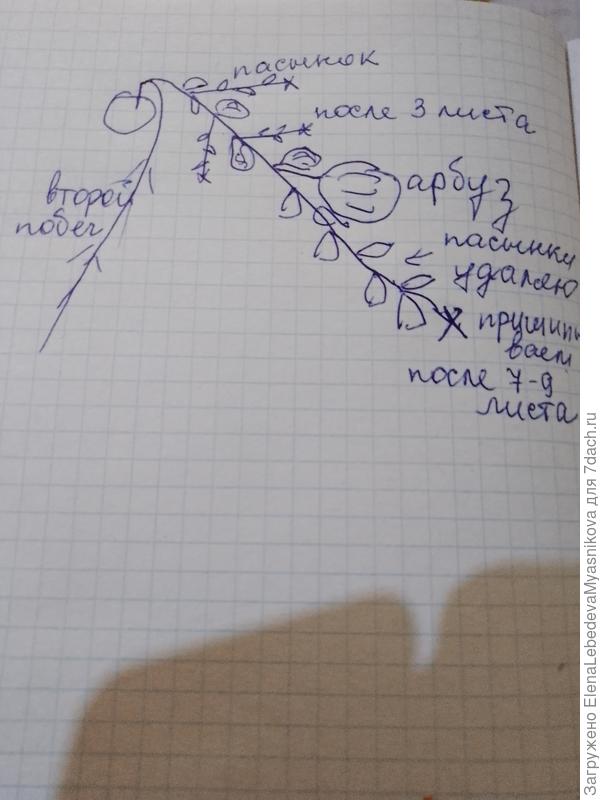 пасынок
после 3 листа
арбуз
второй
побег
пасынки
удаляю
прищипы
ваем
после 7-9
листа
Загружено ElenaLebedevaMyasnikova для 7dach.ru